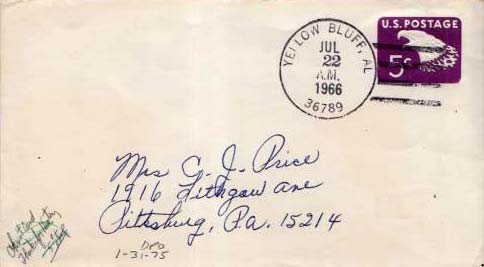 YELLOW BLUFF, AL
JUL
22
A.M.
1966
36789
U.S. POSTAGE
5¢
Mrs C. J. Price
1916 Lithgow Ave
Pittsburg, Pa. 15214
DPO
1-31-75